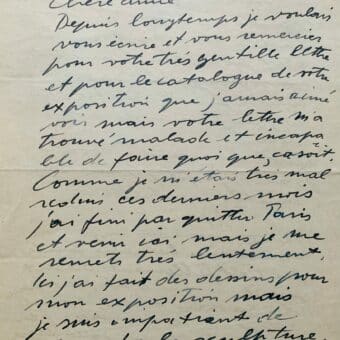 Chère amie
Depuis longtemps je voulais
vous écrire et vous remercier
pour votre très gentille lettre
et pour le catalogue de votre
exposition que j'amais aimé
voir mais votre lettre m'a
trouvé malade et incapa
ble de faire quoi que ce soit.
Comme je m'étais très mal
ces derniers mois
j'ai fini par quitter Paris
et venir ici mais je me
remets très lentement.
Ici j'ai fait des dessins pour
mon exposition mais
je suis impatient de
sculpture